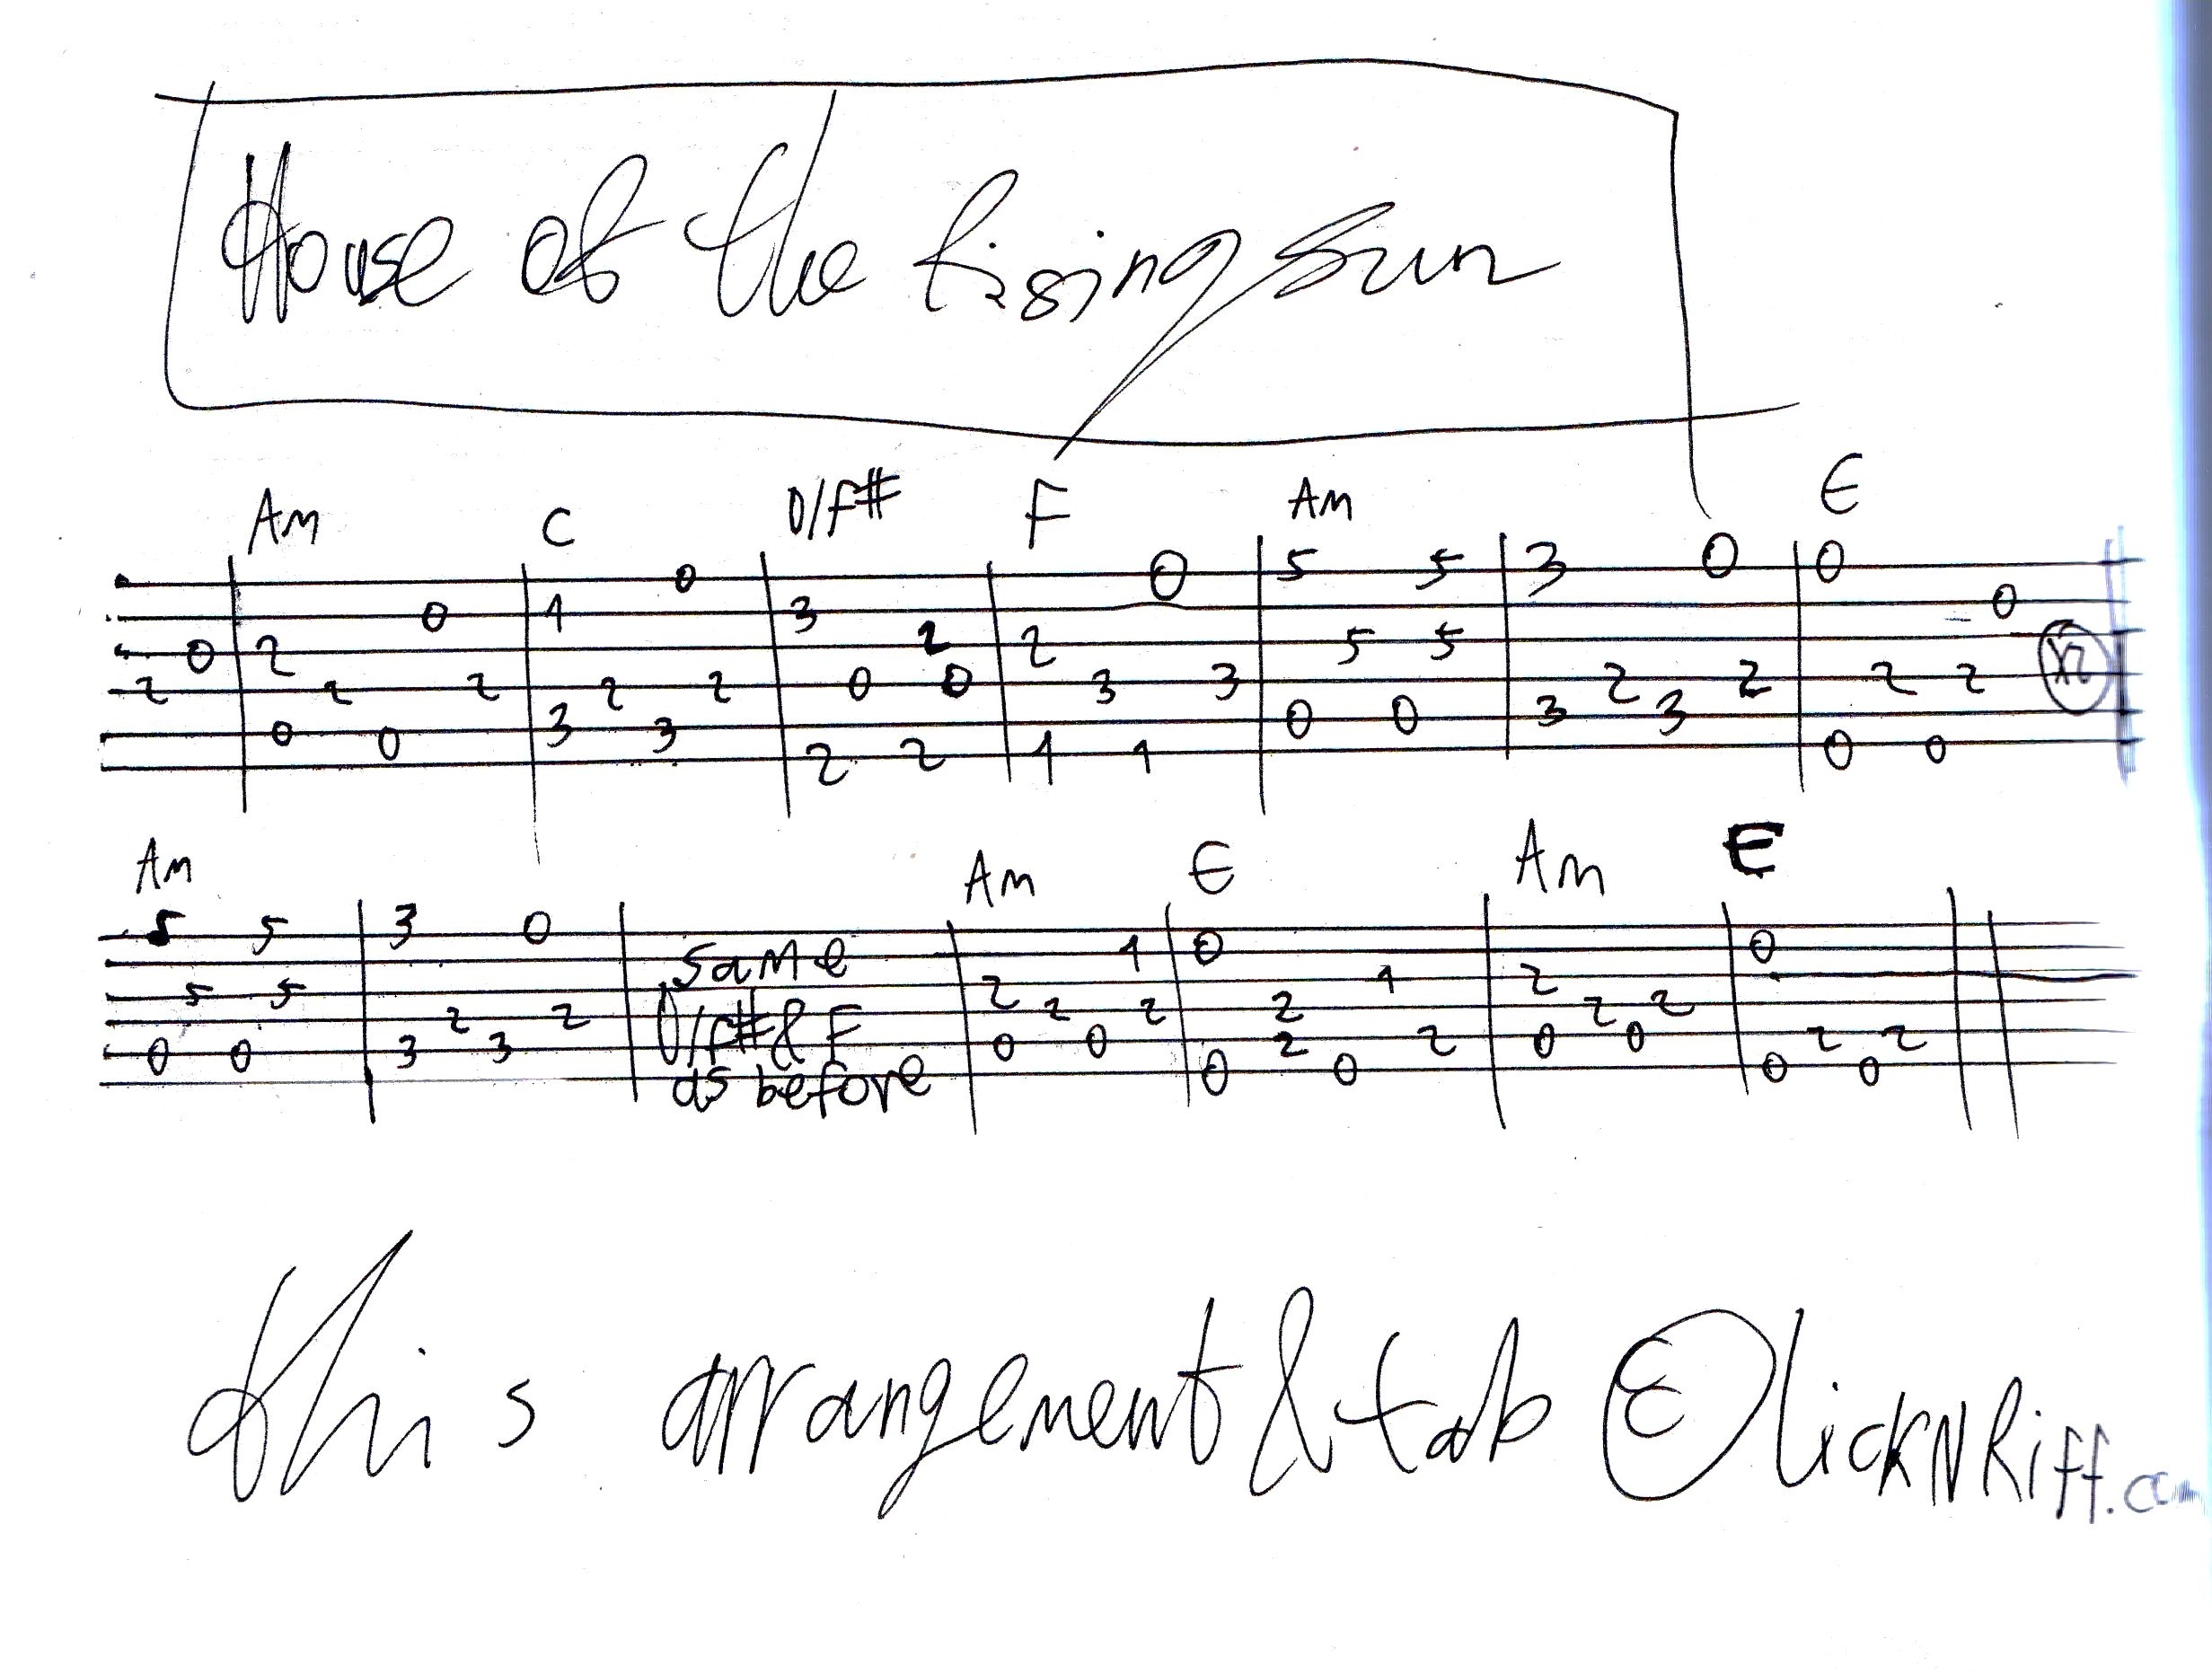 House of the Rising Sun
Am C D/F# F Am E
0 0 3 0 0
0 1 3 0
0 2 2 2 5 5
2 2 2 2 2 0 0 3 3 2 2 2 2 X2
0 0 3 3 0 0 3 3
2 2 1 1 0 0
Am Am E Am E
5 5 3 0
same 1 0 0
5 5 2 1 2
2 2 D/F# & F 2 2 2 2 2
0 0 3 3 0 0 2 2 0 0 2 2
as before 0 0 0 0
This arrangement & tab © LickNRiff.com